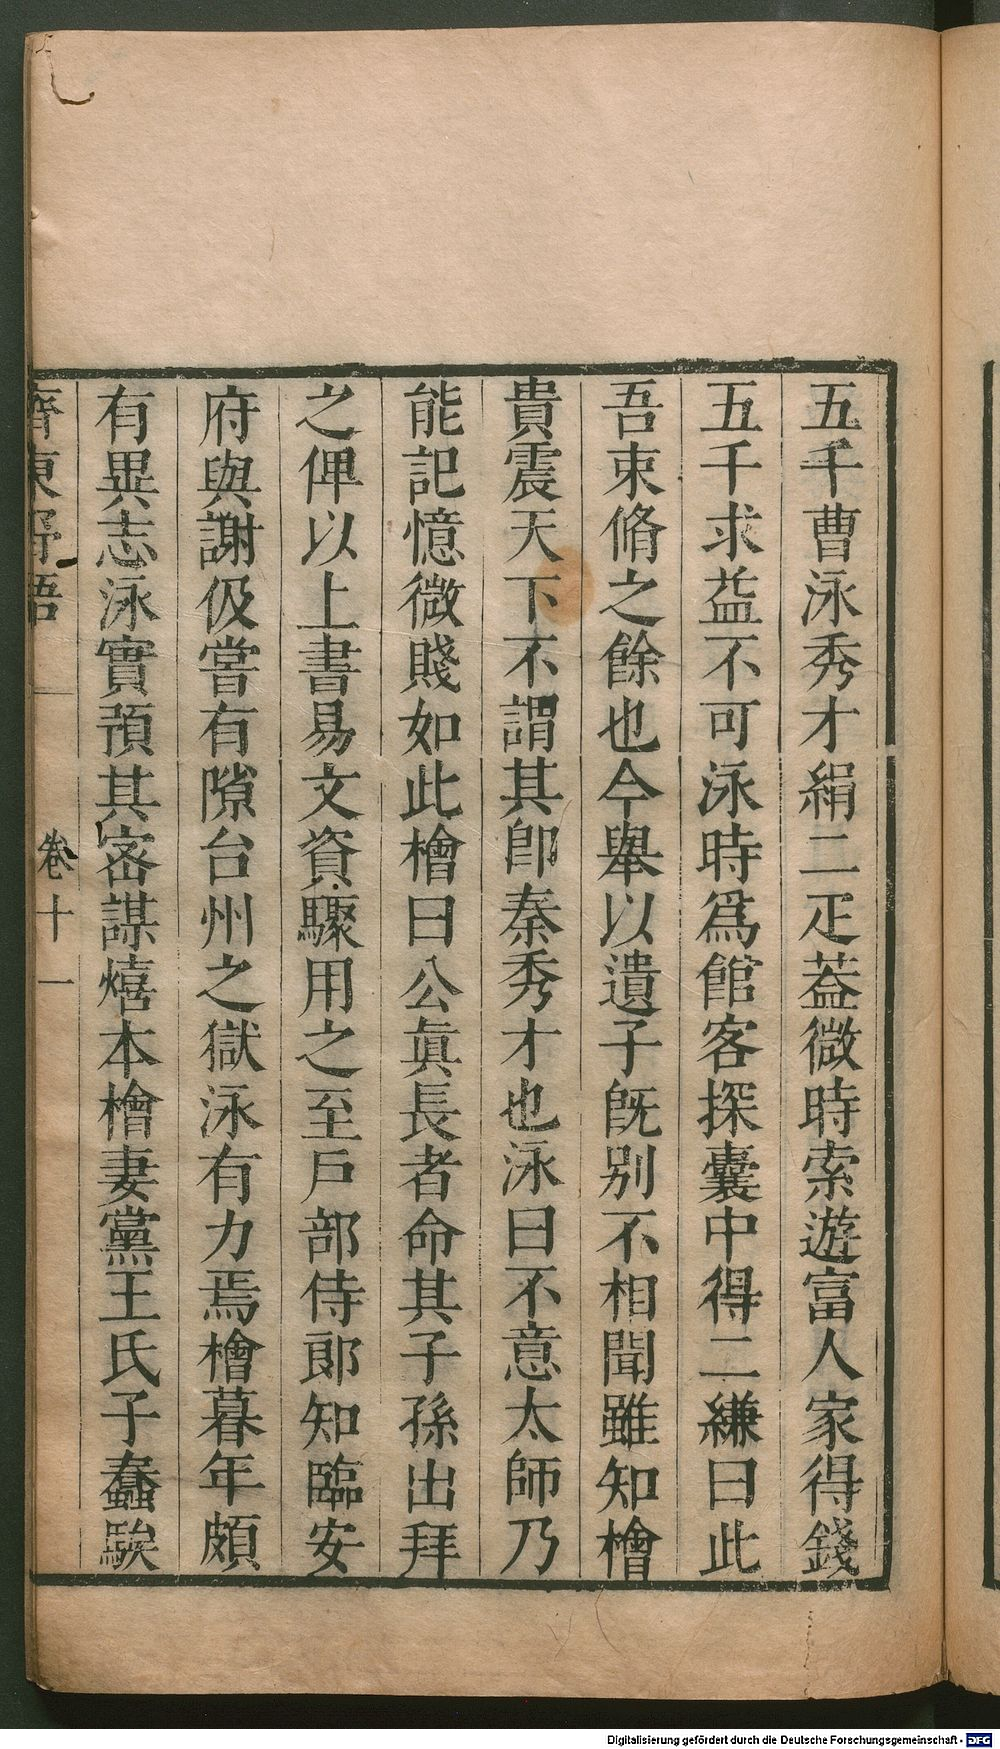 五千曹泳秀才絹二疋葢微時索遊富人家得錢
五千求益不可泳時爲館客探囊中得二縑曰此
吾束脩之餘也今舉以遺子旣别不相聞雖知檜
貴震天下不謂其卽秦秀才也泳曰不意太師乃
能記憶微賤如此檜曰公眞長者命其子孫出拜
之俾以上書易文資驟用之至戶部侍郞知臨安
府與謝伋嘗有隙台州之獄泳有力焉檜暮年頗
有異志泳實預其密謀熺本檜妻黨王氏子蠢騃
齊東野語
卷十一
Digitalisierung gefördert durch die Deutsche Forschungsgemeinschaft - DFG